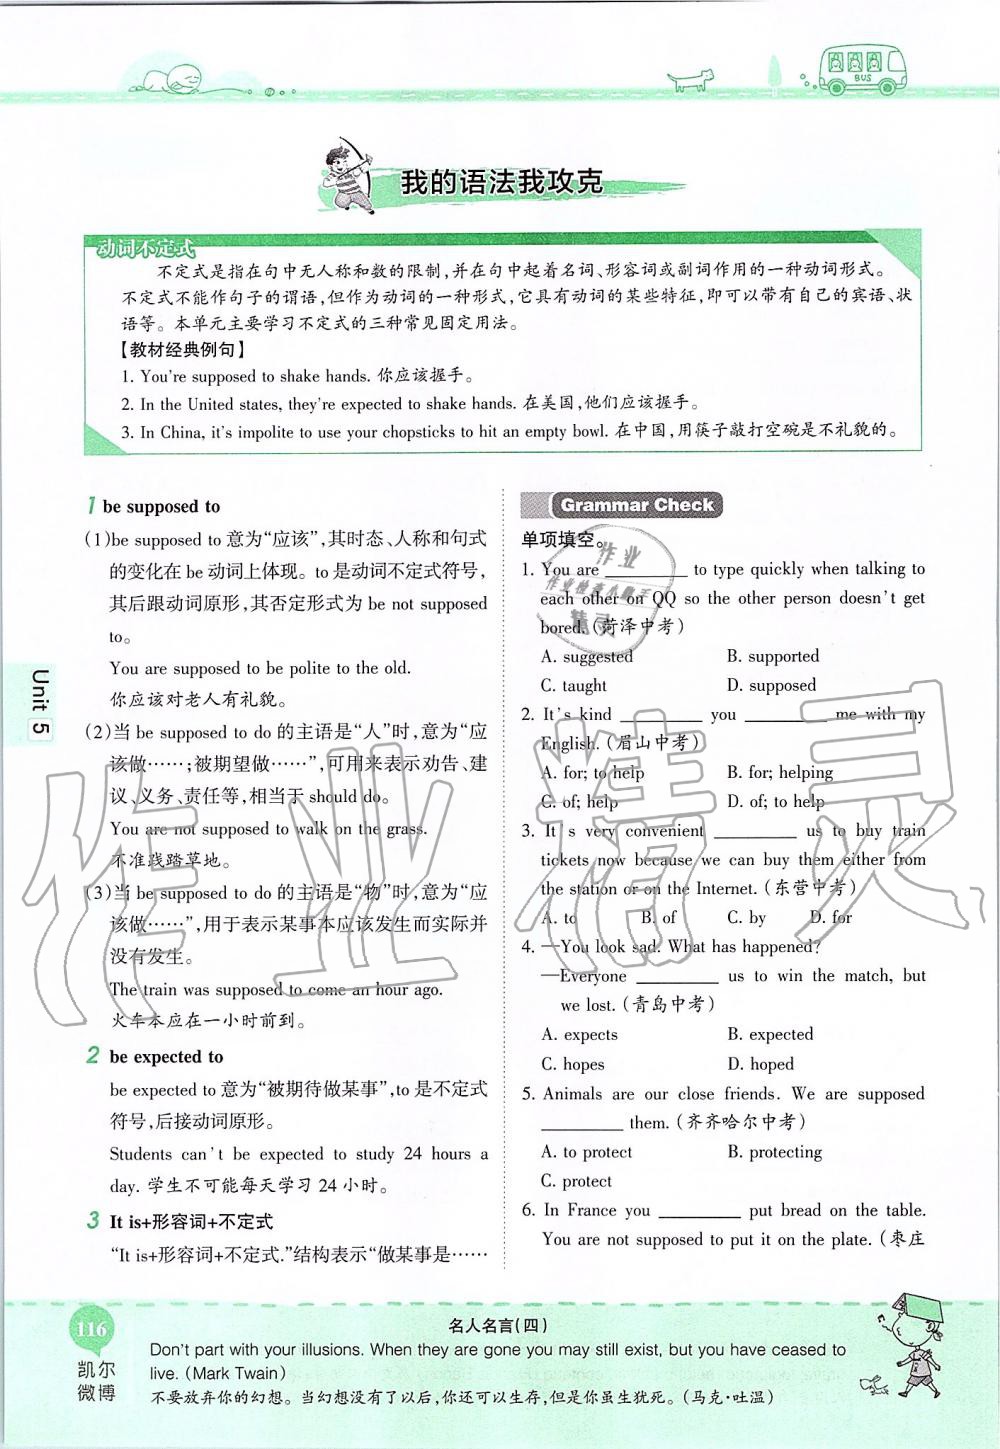 BUS
我的语法我攻克
动词不定式
不定式是指在句中无人称和数的限制,并在句中起着名词、形容词或副词作用的一种动词形式。
不定式不能作句子的谓语,但作为动词的一种形式,它具有动词的某些特征,即可以带有自己的宾语、状
语等。本单元主要学习不定式的三种常见固定用法。
【教材经典例句】
1. You're supposed to shake hands. 你应该握手。
2. In the United states, they're expected to shake hands. 在美国,他们应该握手。
3. In China, it's impolite to use your chopsticks to hit an empty bowl. 在中国,用筷子敲打空碗是不礼貌的。
1 be supposed to
(1)be supposed to 意为“应该”,其时态、人称和句式
的变化在 be 动词上体现。to 是动词不定式符号,
其后跟动词原形,其否定形式为 be not supposed
to。
You are supposed to be polite to the old.
你应该对老人有礼貌。
(2)当 be supposed to do 的主语是“人”时,意为“应
该做……;被期望做……”,可用来表示劝告、建
议、义务、责任等,相当于 should do。
You are not supposed to walk on the grass.
不准践踏草地。
(3)当 be supposed to do 的主语是“物”时,意为“应
该做……”,用于表示某事本应该发生而实际并
没有发生。
The train was supposed to come an hour ago.
火车本应在一小时前到。
2 be expected to
be expected to 意为“被期待做某事”,to 是不定式
符号,后接动词原形。
Students can't be expected to study 24 hours a
day. 学生不可能每天学习 24 小时。
3 It is+形容词+不定式
“It is+形容词+不定式.”结构表示“做某事是……
Grammar Check
单项填空。
1. You are ________ to type quickly when talking to
each other on QQ so the other person doesn't get
bored. (菏泽中考)
A. suggested B. supported
C. taught D. supposed
2. It's kind ________ you ________ me with my
English. (眉山中考)
A. for; to help B. for; helping
C. of; help D. of; to help
3. It s very convenient ________ us to buy train
tickets now because we can buy them either from
the station or on the Internet. (东营中考)
A. to B. of C. by D. for
4. —You look sad. What has happened?
—Everyone ________ us to win the match, but
we lost. (青岛中考)
A. expects B. expected
C. hopes D. hoped
5. Animals are our close friends. We are supposed
________ them. (齐齐哈尔中考)
A. to protect B. protecting
C. protect
6. In France you ________ put bread on the table.
You are not supposed to put it on the plate. (枣庄
Unit 5
116
凯尔
微博
名人名言(四)
Don't part with your illusions. When they are gone you may still exist, but you have ceased to
live. (Mark Twain)
不要放弃你的幻想。当幻想没有了以后,你还可以生存,但是你虽生犹死。(马克·吐温)
作业精灵